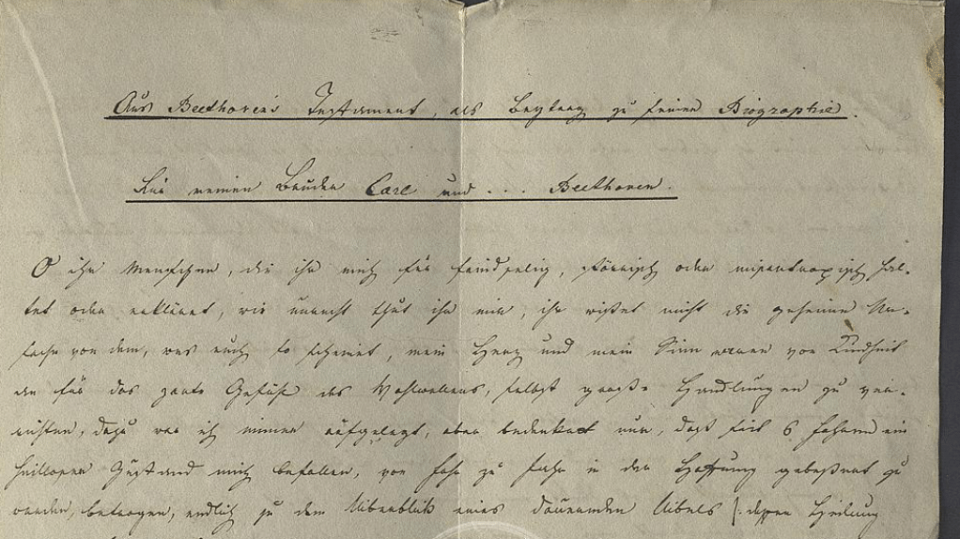 Aus Beethoven's Testament, als Beytrag zu seiner Biographie.
Für meinen Bruder Carl und . . . Beethoven.
O ihr Menschen, die ihr mich für feindselig, störrisch oder misantropisch hal-
tet oder erkläret, wie unrecht thut ihr mir, ihr wißet nicht die geheime Ur-
sache von dem, was euch so scheinet, mein Herz und mein Sinn waren von Kindheit
an für das zarte Gefühl des Wohlwollens, selbst große Handlungen zu ver-
richten, dazu war ich immer aufgelegt, aber bedenket nur, daß seit 6 Jahren ein
heilloser Zustand mich befallen, von Jahr zu Jahr in der Hoffnung gebeßert zu
werden, betrogen, endlich zu dem Überblick eines daurenden Übels /: deßen Heilung